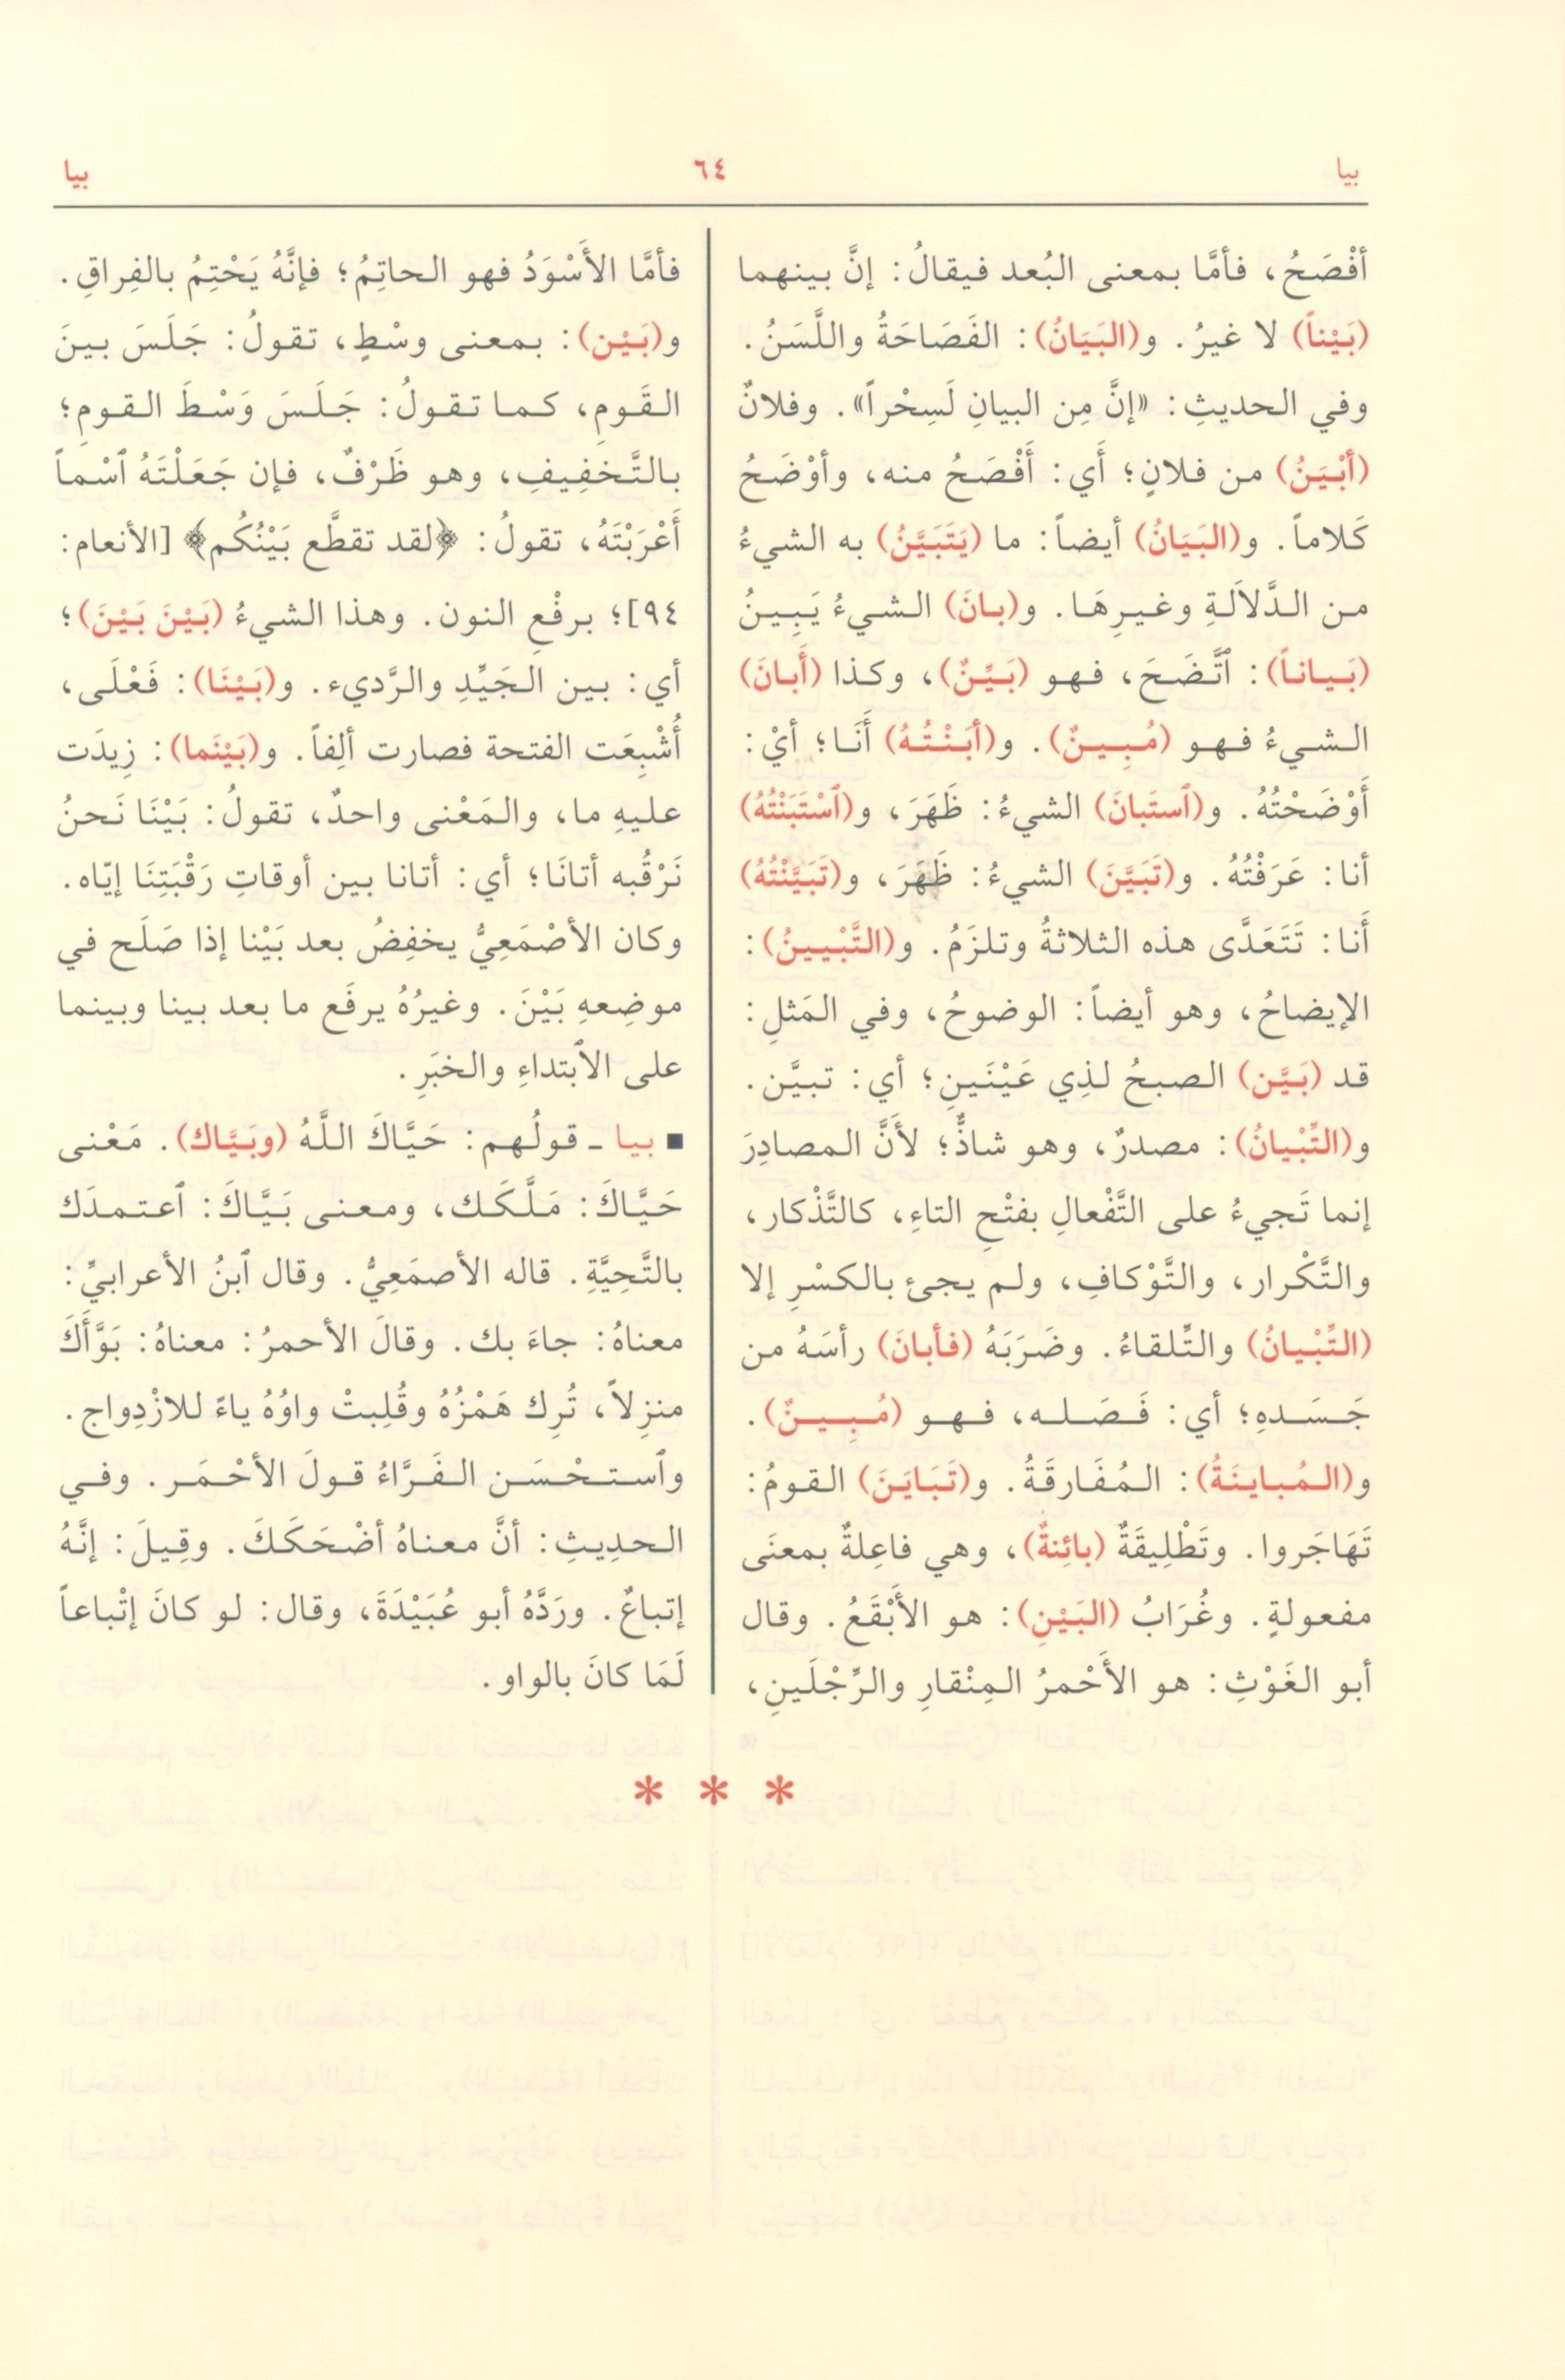 بيا
٦٤
بيا
أفْصَحُ، فأمَّا بمعنى البُعد فيقالُ: إنَّ بينهما
(بَيْناً) لا غيرُ. و(البَيَانُ): الفَصَاحَةُ واللَّسَنُ.
وفي الحديثِ: «إنَّ مِن البيانِ لَسِحْراً». وفلانٌ
(أبْيَنُ) من فلانٍ؛ أَي: أَفْصَحُ منه، وأوْضَحُ
كَلاماً. و(البَيَانُ) أيضاً: ما (يَتَبَيَّنُ) به الشيءُ
من الدَّلاَلَةِ وغيرِهَا. و(بانَ) الشيءُ يَبِينُ
(بَياناً): ٱتَّضَحَ، فهو (بَيِّنٌ)، وكذا (أَبانَ)
الشيءُ فهو (مُبِينٌ). و(أبَنْتُهُ) أَنَا؛ أيْ:
أَوْضَحْتُهُ. و(ٱستَبانَ) الشيءُ: ظَهَرَ، و(ٱسْتَبَنْتُهُ)
أنا: عَرَفْتُهُ. و(تَبَيَّنَ) الشيءُ: ظَهَرَ، و(تَبَيَّنْتُهُ)
أَنا: تَتَعَدَّى هذه الثلاثةُ وتلزَمُ. و(التَّبْيينُ):
الإيضاحُ، وهو أيضاً: الوضوحُ، وفي المَثلِ:
قد (بَيَّن) الصبحُ لذِي عَيْنَينِ؛ أي: تبيَّن.
و(التِّبْيانُ): مصدرٌ، وهو شاذٌّ؛ لأَنَّ المصادِرَ
إنما تَجيءُ على التَّفْعالِ بفتْحِ التاءِ، كالتَّذْكار،
والتَّكْرار، والتَّوْكافِ، ولم يجئ بالكسْرِ إلا
(التِّبْيانُ) والتِّلقاءُ. وضَرَبَهُ (فأبانَ) رأسَهُ من
جَسَدهِ؛ أي: فَصَله، فهو (مُبِينٌ).
و(المُباينَةُ): المُفَارقَةُ. و(تَبَايَنَ) القومُ:
تَهَاجَروا. وتَطْلِيقَةٌ (بائِنةٌ)، وهي فاعِلةٌ بمعنَى
مفعولةٍ. وغُرَابُ (البَيْنِ): هو الأَبْقَعُ. وقال
أبو الغَوْثِ: هو الأَحْمرُ المِنْقارِ والرِّجْلَينِ،
فأمَّا الأَسْوَدُ فهو الحاتِمُ؛ فإنَّهُ يَحْتِمُ بالفِراقِ.
و(بَيْن): بمعنى وسْطٍ، تقولُ: جَلَسَ بينَ
القَومِ، كما تقولُ: جَلَسَ وَسْطَ القومِ؛
بالتَّخفِيفِ، وهو ظَرْفٌ، فإن جَعَلْتَهُ ٱسْماً
أَعْرَبْتَهُ، تقولُ: ﴿لقد تقطَّع بَيْنُكُم﴾ [الأنعام:
٩٤]؛ برفْعِ النون. وهذا الشيءُ (بَيْنَ بَيْنَ)؛
أي: بين الجَيِّدِ والرَّديء. و(بَيْنَا): فَعْلَى،
أُشْبِعَت الفتحة فصارت ألِفاً. و(بَيْنَما): زِيدَت
عليهِ ما، والمَعْنى واحدٌ، تقولُ: بَيْنَا نَحنُ
نَرْقُبه أتانَا؛ أي: أتانا بين أوقاتِ رَقْبَتِنَا إيّاه.
وكان الأصْمَعِيُّ يخفِضُ بعد بَيْنا إذا صَلَح في
موضِعهِ بَيْنَ. وغيرُهُ يرفَع ما بعد بينا وبينما
على الٱبتداءِ والخبَرِ.
■ بيا ـ قولُهم: حَيَّاكَ اللَّهُ (وبَيَّاك). مَعْنى
حَيَّاكَ: مَلَّكَك، ومعنى بَيَّاكَ: ٱعتمدَك
بالتَّحِيَّةِ. قاله الأصمَعِيُّ. وقال ٱبنُ الأعرابيِّ:
معناهُ: جاءَ بك. وقالَ الأحمرُ: معناهُ: بَوَّأَكَ
منزِلاً، تُرِك هَمْزُهُ وقُلِبتْ واوُهُ ياءً للازْدِواج.
وٱستحْسَن الفَرَّاءُ قولَ الأحْمَر. وفي
الحدِيثِ: أنَّ معناهُ أضْحَكَكَ. وقِيلَ: إنَّهُ
إتباعٌ. ورَدَّهُ أبو عُبَيْدَةَ، وقال: لو كانَ إتْباعاً
لَمَا كانَ بالواو.
* * *